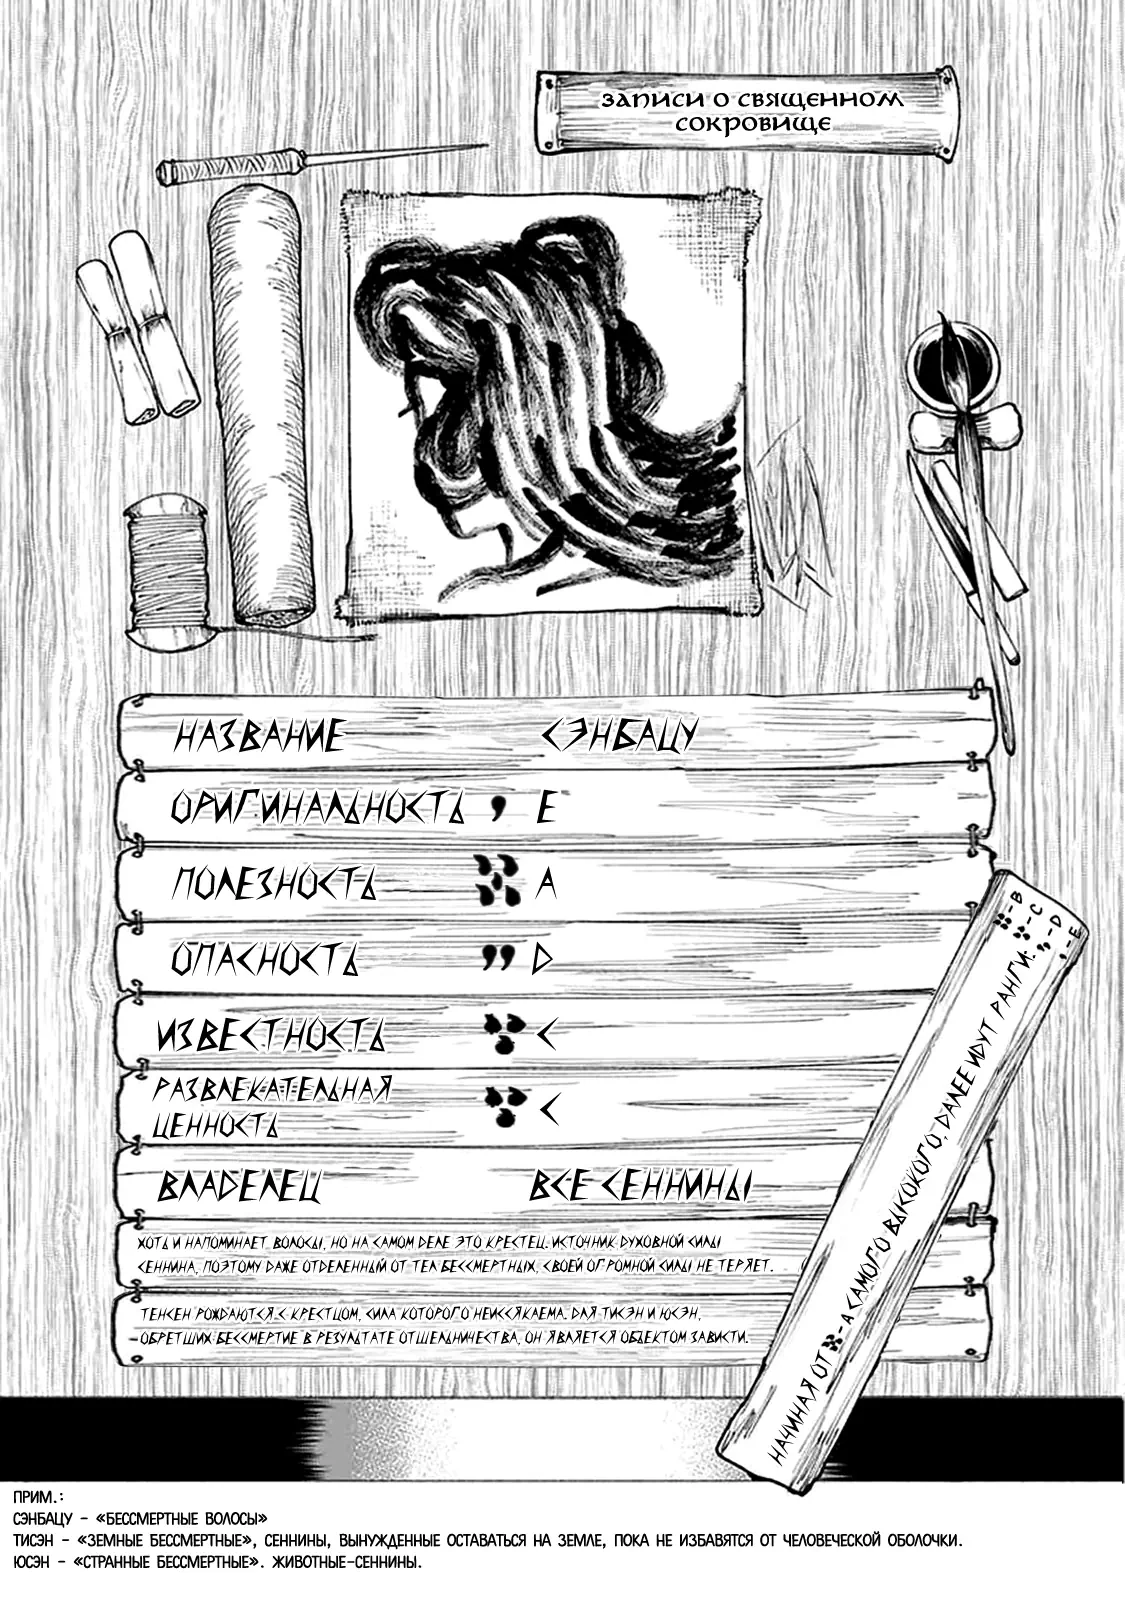 ЗАПИСИ О СВЯЩЕННОМ
СОКРОВИЩЕ
НАЗВАНИЕ СЭНБАЦУ
ОРИГИНАЛЬНОСТЬ E
ПОЛЕЗНОСТЬ A
ОПАСНОСТЬ D
ИЗВЕСТНОСТЬ C
РАЗВЛЕКАТЕЛЬНАЯ
ЦЕННОСТЬ C
ВЛАДЕЛЕЦ ВСЕ СЕННИНЫ
ХОТЬ И НАПОМИНАЕТ ВОЛОСЫ, НО НА САМОМ ДЕЛЕ ЭТО КРЕСТЕЦ. ИСТОЧНИК ДУХОВНОЙ СИЛЫ
СЕННИНА, ПОЭТОМУ ДАЖЕ ОТДЕЛЕННЫЙ ОТ ТЕЛ БЕССМЕРТНЫХ, СВОЕЙ ОГРОМНОЙ СИЛЫ НЕ ТЕРЯЕТ.
ТЕНСЕН РОЖДАЮТСЯ С КРЕСТЦОМ, СИЛА КОТОРОГО НЕИССЯКАЕМА. ДЛЯ ТИСЭН И ЮСЭН,
ОБРЕТШИХ БЕССМЕРТИЕ В РЕЗУЛЬТАТЕ ОТШЕЛЬНИЧЕСТВА, ОН ЯВЛЯЕТСЯ ОБЪЕКТОМ ЗАВИСТИ.
НАЧИНАЯ ОТ - A САМОГО ВЫСОКОГО, ДАЛЕЕ ИДУТ РАНГИ:
- B
- C
- D
- E
ПРИМ.:
СЭНБАЦУ - «БЕССМЕРТНЫЕ ВОЛОСЫ»
ТИСЭН - «ЗЕМНЫЕ БЕССМЕРТНЫЕ», СЕННИНЫ, ВЫНУЖДЕННЫЕ ОСТАВАТЬСЯ НА ЗЕМЛЕ, ПОКА НЕ ИЗБАВЯТСЯ ОТ ЧЕЛОВЕЧЕСКОЙ ОБОЛОЧКИ.
ЮСЭН - «СТРАННЫЕ БЕССМЕРТНЫЕ». ЖИВОТНЫЕ-СЕННИНЫ.